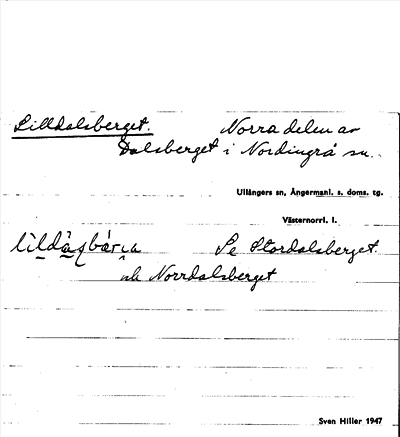 Lilldalsberget. Norra delen av
Dalsberget i Nordingrå sn.
Ullångers sn, Ångermanl. s. doms. tg.
Västernorrl. l.
Se Stordalsberget.
och Norrdalsberget
Sven Hiller 1947